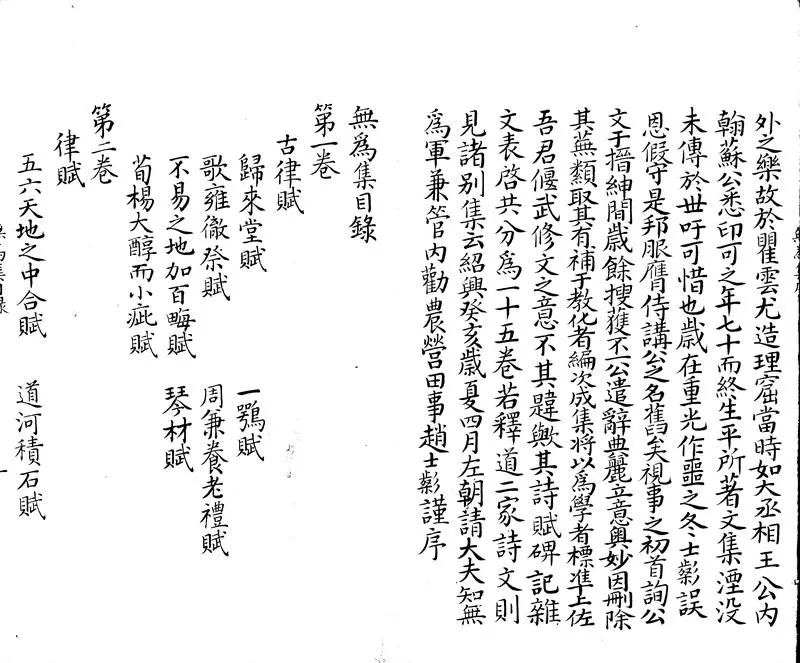 外之樂故於瞿雲尤造理窟當時如大丞相王公内
翰蘇公悉印可之年七十而終生平所著文集湮没
未傳於世吁可惜也歲在重光作噩之冬士㣟誤
恩假守是邦服膺侍講公之名舊矣視事之初首詢公
文于搢紳間歲餘搜獲不一公遣辭典麗立意奥妙因刪除
其蕪纇取其有補于教化者編次成集將以為學者標準上佐
吾君偃武修文之意不其韙歟其詩賦碑記雜
文表啓共分爲一十五卷若釋道二家詩文則
見諸别集云紹興癸亥歲夏四月左朝請大夫知無
爲軍兼管内勸農營田事趙士㣟謹序
無爲集目錄
第一卷
古律賦
歸來堂賦 一鶚賦
歌雍徹祭賦 周兼養老禮賦
不易之地加百畮賦 琴材賦
荀楊大醇而小疵賦
第二卷
律賦
五六天地之中合賦 道河積石賦